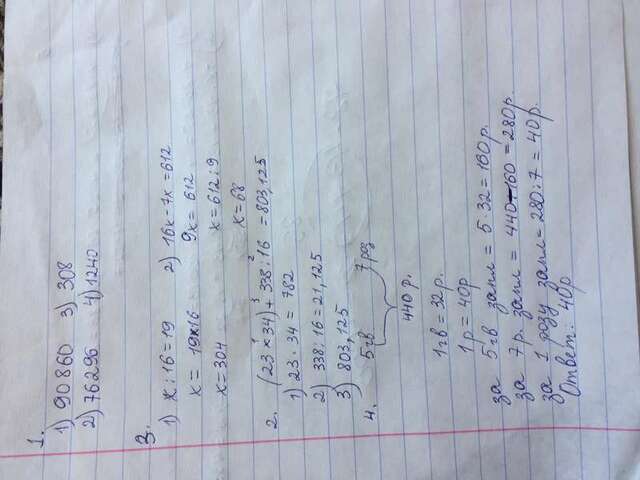 1.
1) 90860 3) 308
2) 76296 4) 1240
3.
1) x : 16 = 19 2) 16x - 7x = 612
x = 19 x 16 9x = 612
x = 304 x = 612 : 9
x = 68
1 3 2
2. (23 x 34) + 338 : 16 = 803,125
1) 23 · 34 = 782
2) 338 : 16 = 21,125
3) 803,125
4. 5гв 7роз
440 р.
1гв = 32р.
1р = 40р
за 5гв запл = 5 · 32 = 160р.
за 7р. запл = 440-160 = 280р.
за 1 розу запл = 280 : 7 = 40р.
Ответ: 40р